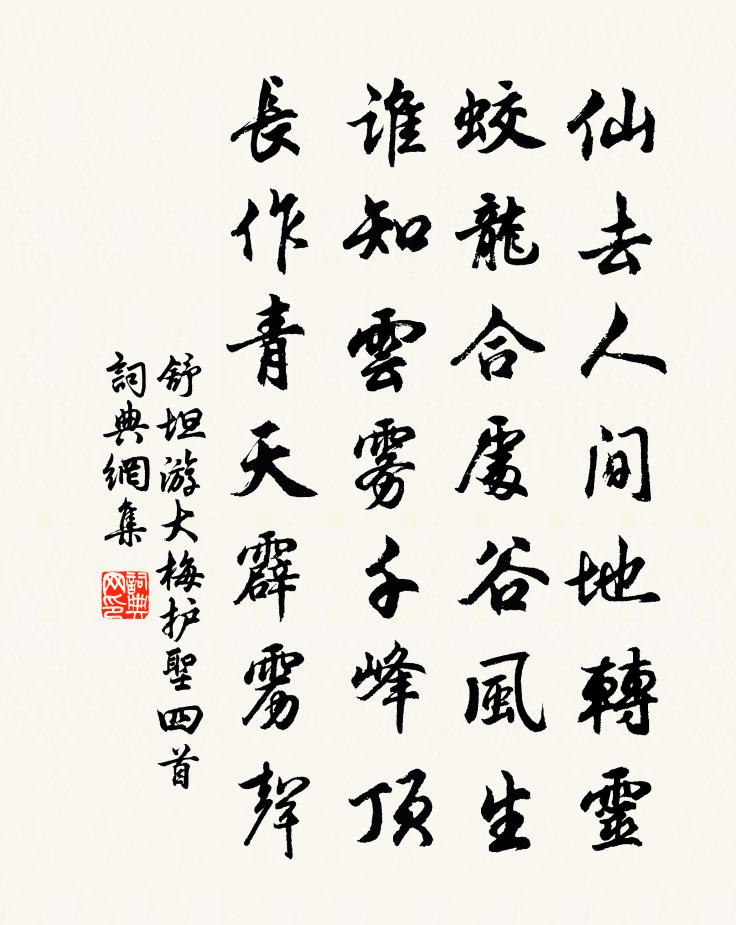 仙去人間地轉靈
蛟龍合處谷風生
誰知雲雾千峰頂
長作青天霹雳聲
舒坦游大梅护聖四首
詞典網集
詞典网印